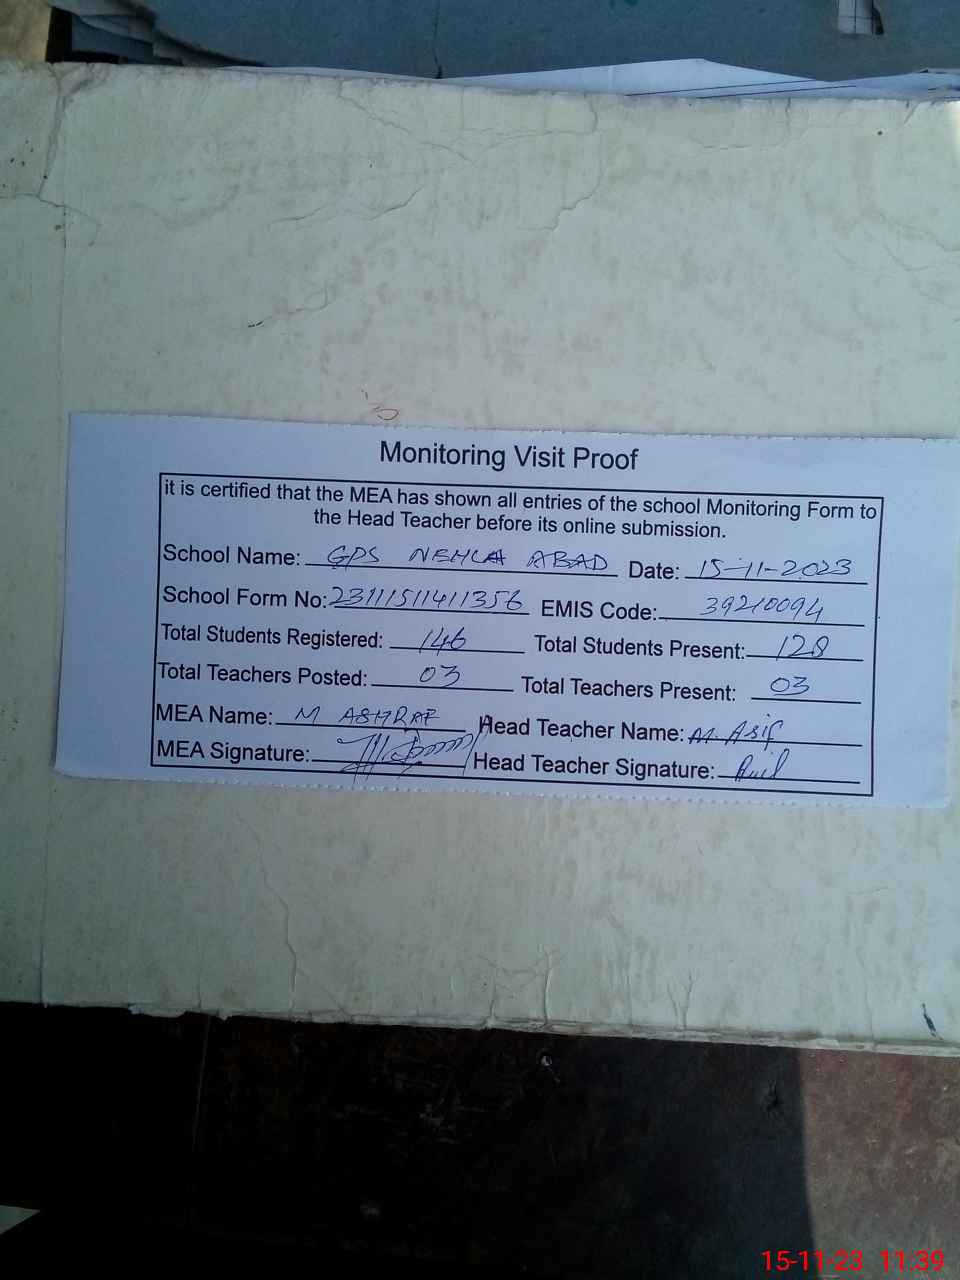 Monitoring Visit Proof
it is certified that the MEA has shown all entries of the school Monitoring Form to
the Head Teacher before its online submission.
School Name: GPS NEHLA ABAD Date: 15-11-2023
School Form No: 23111511411356 EMIS Code: 39210094
Total Students Registered: 146 Total Students Present: 128
Total Teachers Posted: 03 Total Teachers Present: 03
MEA Name: M ASHRAF Head Teacher Name: M. Asif
MEA Signature: Head Teacher Signature:
15-11-23 11:39